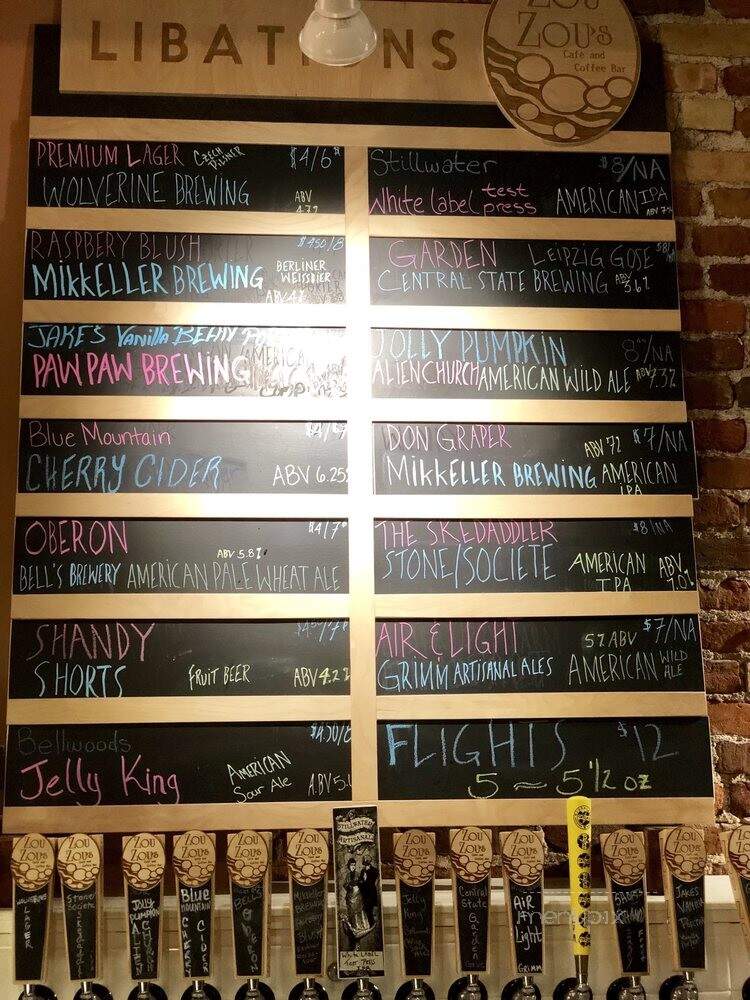 LIBATIONS
ZOU ZOU'S
Café and
Coffee Bar
PREMIUM LAGER CZECH PILSNER $4/6
WOLVERINE BREWING ABV 4.7%
RASPBERY BLUSH $450/8
MIKKELLER BREWING BERLINER WEISSBIER
ABV 4%
JAKE'S Vanilla BERRY
PAW PAW BREWING AMERICA
Blue Mountain
CHERRY CIDER ABV 6.25%
OBERON $4/7
ABV 5.8%
BELL'S BREWERY AMERICAN PALE WHEAT ALE
SHANDY
SHORTS FRUIT BEER ABV 4.2%
Bellwoods $450/8
Jelly King AMERICAN Sour Ale ABV 5.
Stillwater $8/NA
White label test press AMERICAN IPA
ABV 7%
GARDEN LEIPZIG GOSE
CENTRAL STATE BREWING ABV 3.6%
JOLLY PUMPKIN 8/NA
ALIEN CHURCH AMERICAN WILD ALE ABV 7.3%
DON GRAPER ABV 7% $7/NA
MIKKELLER BREWING AMERICAN IPA
THE SKEDADDLER $8/NA
STONE/SOCIETE AMERICAN IPA ABV 7.0%
AIR & LIGHT 5% ABV $7/NA
GRIMM ARTISANAL ALES AMERICAN WILD ALE
FLIGHTS $12
5 ~ 5 1/2 OZ
ZOU ZOU'S
LAGER
ZOU ZOU'S
Stone Societe
ZOU ZOU'S
JOLLY PUMPKIN
ALIEN CHURCH
ZOU ZOU'S
Blue MOUNTAIN
CHERRY CIDER
ZOU ZOU'S
BELL'S
OBERON
ZOU ZOU'S
Mikkeller
STILLWATER
ARTISANAL
White Label
Test Press
IPA
ZOU ZOU'S
Jelly King
ZOU ZOU'S
Central State
Garden
ZOU ZOU'S
AIR & Light
GRIMM
ZOU ZOU'S
ZOU ZOU'S
JAKES
menupix